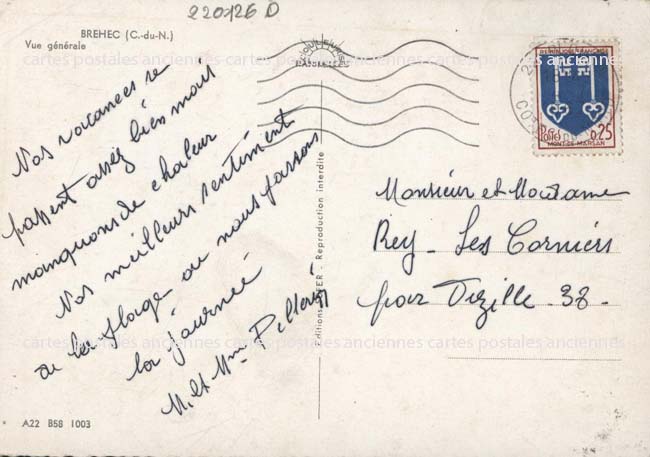 220126 D
BREHEC (C.-du-N.)
Vue générale
Nos vacances se
passent assez bien mais
manquons de chaleur
Nos meilleurs sentiments
de la plage ou nous passons
la journée
M. et Mme
Editions YER - Reproduction interdite
REPUBLIQUE FRANCAISE
0,25
MONT-DE-MARSAN
Monsieur et Madame
Rey - Les Corniers
par Vizille - 38 -
cartes postales anciennes cartes postales anciennes cartes postales anciennes
cartes postales anciennes cartes postales anciennes cartes postales anciennes
A22 B58 1003